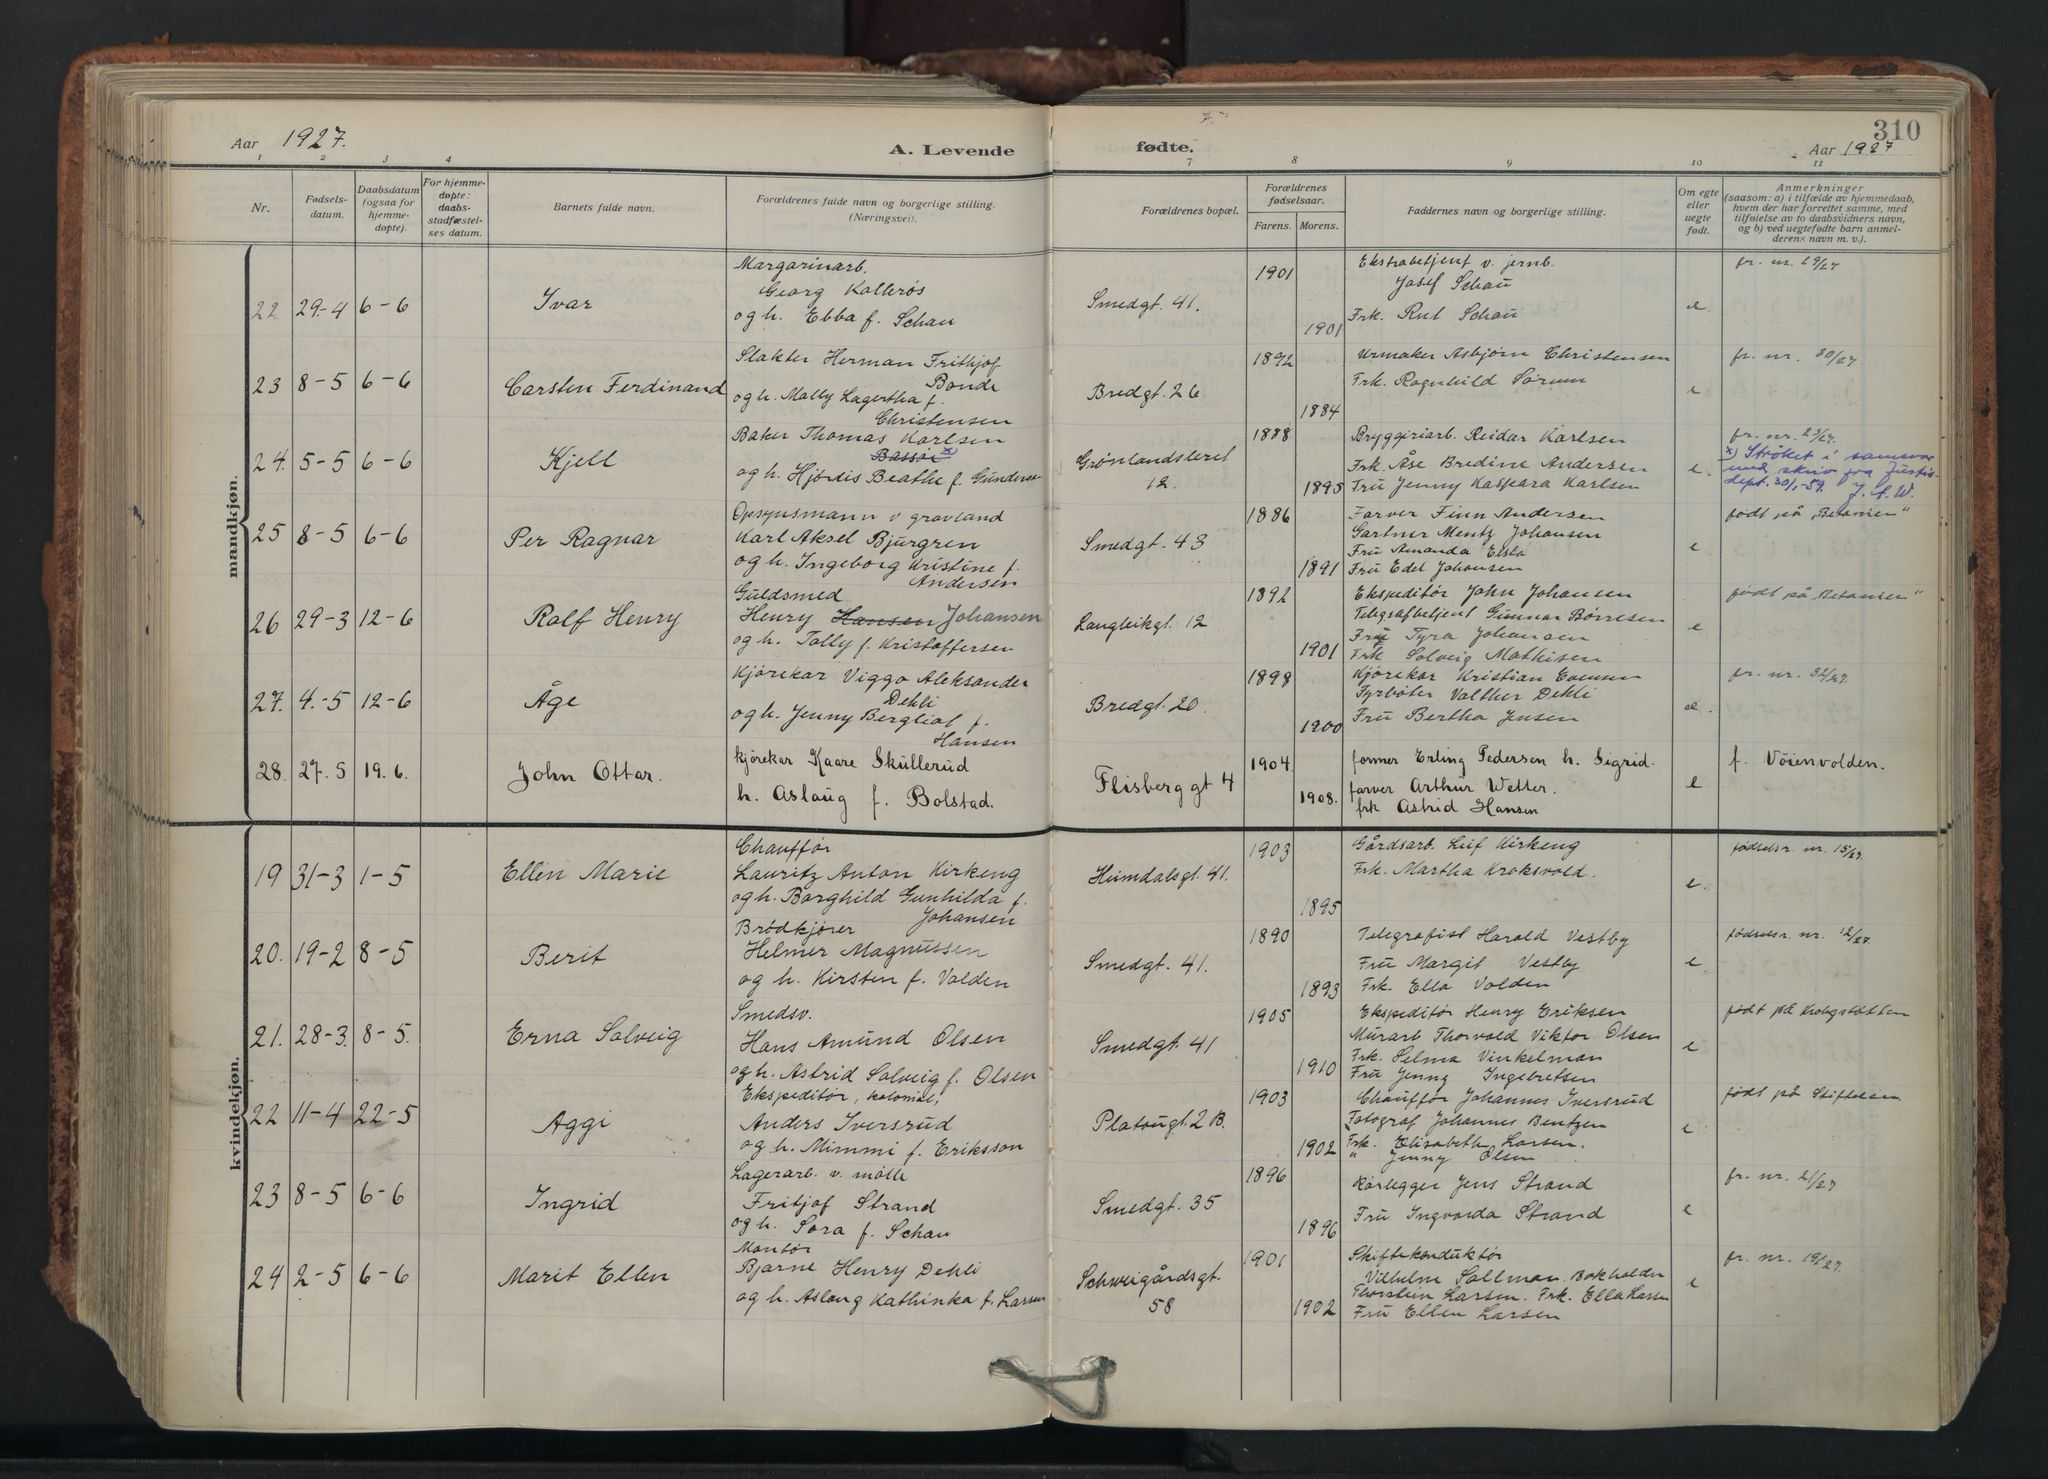 310
Aar 1927. A. Levende fødte. Aar 1927
1 2 3 4 7 8 9 10 11
Nr.
Fødsels-
datum.
Daabsdatum
(ogsaa for
hjemme-
døpte).
For hjemme-
døpte:
daabs-
stadfæstel-
ses datum.
Barnets fulde navn.
Forældrenes fulde navn og borgerlige stilling.
(Næringsvei).
Forældrenes bopæl.
Forældrenes
fødselsaar.
Farens. Morens.
Faddernes navn og borgerlige stilling.
Om egte
eller
uegte
født.
Anmerkninger
(saasom: a) i tilfælde av hjemmedaab,
hvem der har forrettet samme, med
tilføielse av to daabsvidners navn,
og b) ved uegtefødte barn anmel-
derens navn m. v.).
mandkjøn.
22 29-4 6-6 Ivar
Margarinarb.
Georg Kollerøs
og h. Ebba f. Schau
Smedgt. 41.
1901
1901
Ekstrabetjent v. jernb.
Josef Schau
Frk. Rut Schau
e
fr. nr. 29/27
23 8-5 6-6 Carsten Ferdinand
Slakter Herman Frithjof
Bonde
og h. Molly Lagertha f.
Christensen
Bredgt. 26
1892
1884
Urmaker Asbjørn Christensen
Frk. Ragnhild Sørum
e
fr. nr. 30/27
24. 5-5 6-6 Kjell
Baker Thomas Karlsen
Bassøi x)
og h. Hjørdis Beathe f. Gunderse
Grønlandsleret
12.
1888
1895
Bryggeriarb. Reidar Karlsen
Frk. Åse Bredine Andersen
Fru Jenny Kaspara Karlsen
e
fr. nr. 23/27.
x) Strøket i samsvar
med skriv fra Justis-
dept. 30/1-59. J. S. W.
25 8-5 6-6 Per Ragnar
Opsynsmann v gravland
Karl Aksel Bjurgren
og h. Ingeborg Kristine f.
Andersen
Smedgt. 43
1886
1891
Farver Finn Andersen
Gartner Mentz Johansen
Fru Amanda Elstø
Fru Edel Johansen
e
født på „Betanien"
26 29-3 12-6 Rolf Henry
Guldsmed
Henry Hansen Johansen
og h. Tolly f. Kristoffersen
Langleikgt. 12
1892
1901
Ekspeditør John Johansen
Telegrafbetjent Gunnar Børresen
Fru Tyra Johansen
Frk Solveig Mathisen
e
født på „Betanien"
27. 4-5 12-6 Åge
Kjørekar Viggo Aleksander
Dehli
og h. Jenny Bergliot f.
Hansen
Bredgt. 20.
1898
1900
Kjørekar Kristian Evensen
Fyrbøter Valther Dehli
Fru Bertha Jensen
e.
fr. nr. 32/27.
28. 27. 5 19. 6. John Ottar.
kjørekar Kaare Skullerud
h. Aslaug f. Bolstad.
Flisberg gt 4
1904.
1908.
former Erling Pedersen h. Sigrid.
farver Arthur Wetter.
frk Astrid Hansen
e
f. Vöienvolden.
kvindekjøn.
19 31-3 1-5 Ellen Marie
Chauffør
Lauritz Anton Kirkeng
og h. Borghild Gunhilda f.
Johansen
Heimdalsgt. 41.
1903
1895
Gårdsarb. Leif Kirkeng
Frk. Martha Kroksvold.
e.
fødselsr. nr. 15/27.
20. 19-2 8-5 Berit
Brødkjører
Helmer Magnussen
og h. Kirsten f. Volden
Smedgt. 41.
1890
1893
Telegrafist Harald Vestby
Fru Margit Vestby
Frk. Ella Volden
e
fødselsr. nr. 12/27.
21. 28-3. 8-5. Erna Solveig
Smedsv.
Hans Amund Olsen
og h. Astrid Solveig f. Olsen
Smedgt. 41
1905
1910
Ekspeditør Henry Eriksen
Murarb Thorvald Viktor Olsen
Frk. Selma Vinkelman
Fru Jenny Ingebretsen
e
født på Krohgstøtten
22 11-4 22-5 Aggi
Ekspeditør, kolonial,
Anders Iversrud
og h. Mimmi f. Eriksson
Platougt. 2 B.
1903
1902
Chauffør Johannes Iversrud
Fotograf Johannes Bentzen
Frk. Elisabeth Larsen.
" Jenny Olsen
e
født på Stiftelsen
23 8-5 6-6 Ingrid
Lagerarb. v. mølle
Fritjof Strand
og h. Sora f. Schau
Smedgt. 35
1896
1896
Rørlegger Jens Strand
Fru Ingvarda Strand
e
fr. nr. 21/27
24 2-5 6-6 Marit Ellen
Montør
Bjarne Henry Dehli
og h. Aslaug Kathinka f. Larsen
Schweigårdsgt.
58
1901
1902
Skiftekonduktør
Vilhelm Sollman. Bokholder
Thorstein Larsen. Frk. Ella Larsen
Fru Ellen Larsen
e
fr. nr. 19/27.